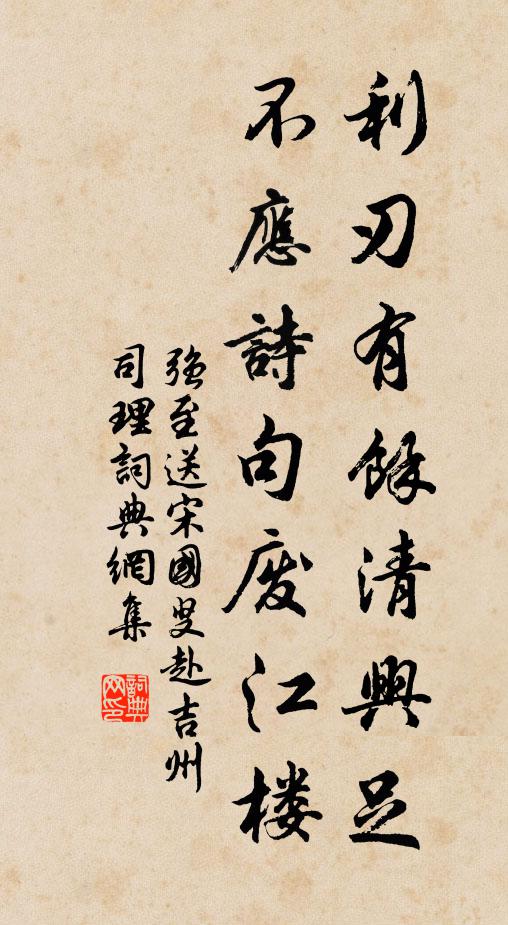 利刃有餘清興足
不應詩句廢江楼
强至送宋國叟赴吉州
司理詞典網集
詞典
网印